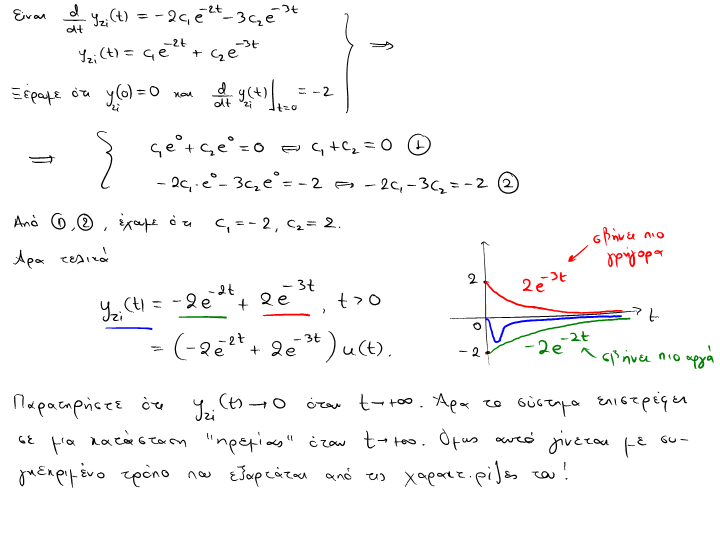 Είναι d/dt y_zi(t) = -2c₁e^{-2t} - 3c₂e^{-3t}
y_zi(t) = c₁e^{-2t} + c₂e^{-3t} } ⟹
Ξέραμε ότι y_zi(0) = 0 και d/dt y_zi(t)|_{t=0} = -2
⟹ { c₁e⁰ + c₂e⁰ = 0 ⟺ c₁ + c₂ = 0 ①
-2c₁·e⁰ - 3c₂e⁰ = -2 ⟺ -2c₁ - 3c₂ = -2 ②
Από ①,②, έχαμε ότι c₁ = -2, c₂ = 2.
Άρα τελικά
y_zi(t) = -2e^{-2t} + 2e^{-3t}, t > 0
= (-2e^{-2t} + 2e^{-3t}) u(t).
σβήνει πιο
γρήγορα
2e^{-3t}
2
0
t
-2
-2e^{-2t}
σβήνει πιο αργά
Παρατηρήστε ότι y_zi(t) → 0 όταν t → +∞. Άρα το σύστημα επιστρέφει
σε μια κατάσταση "ηρεμίας" όταν t → +∞. Όμως αυτό γίνεται με συ-
γκεκριμένο τρόπο που εξαρτάται από τις χαρακτ. ρίζες του!